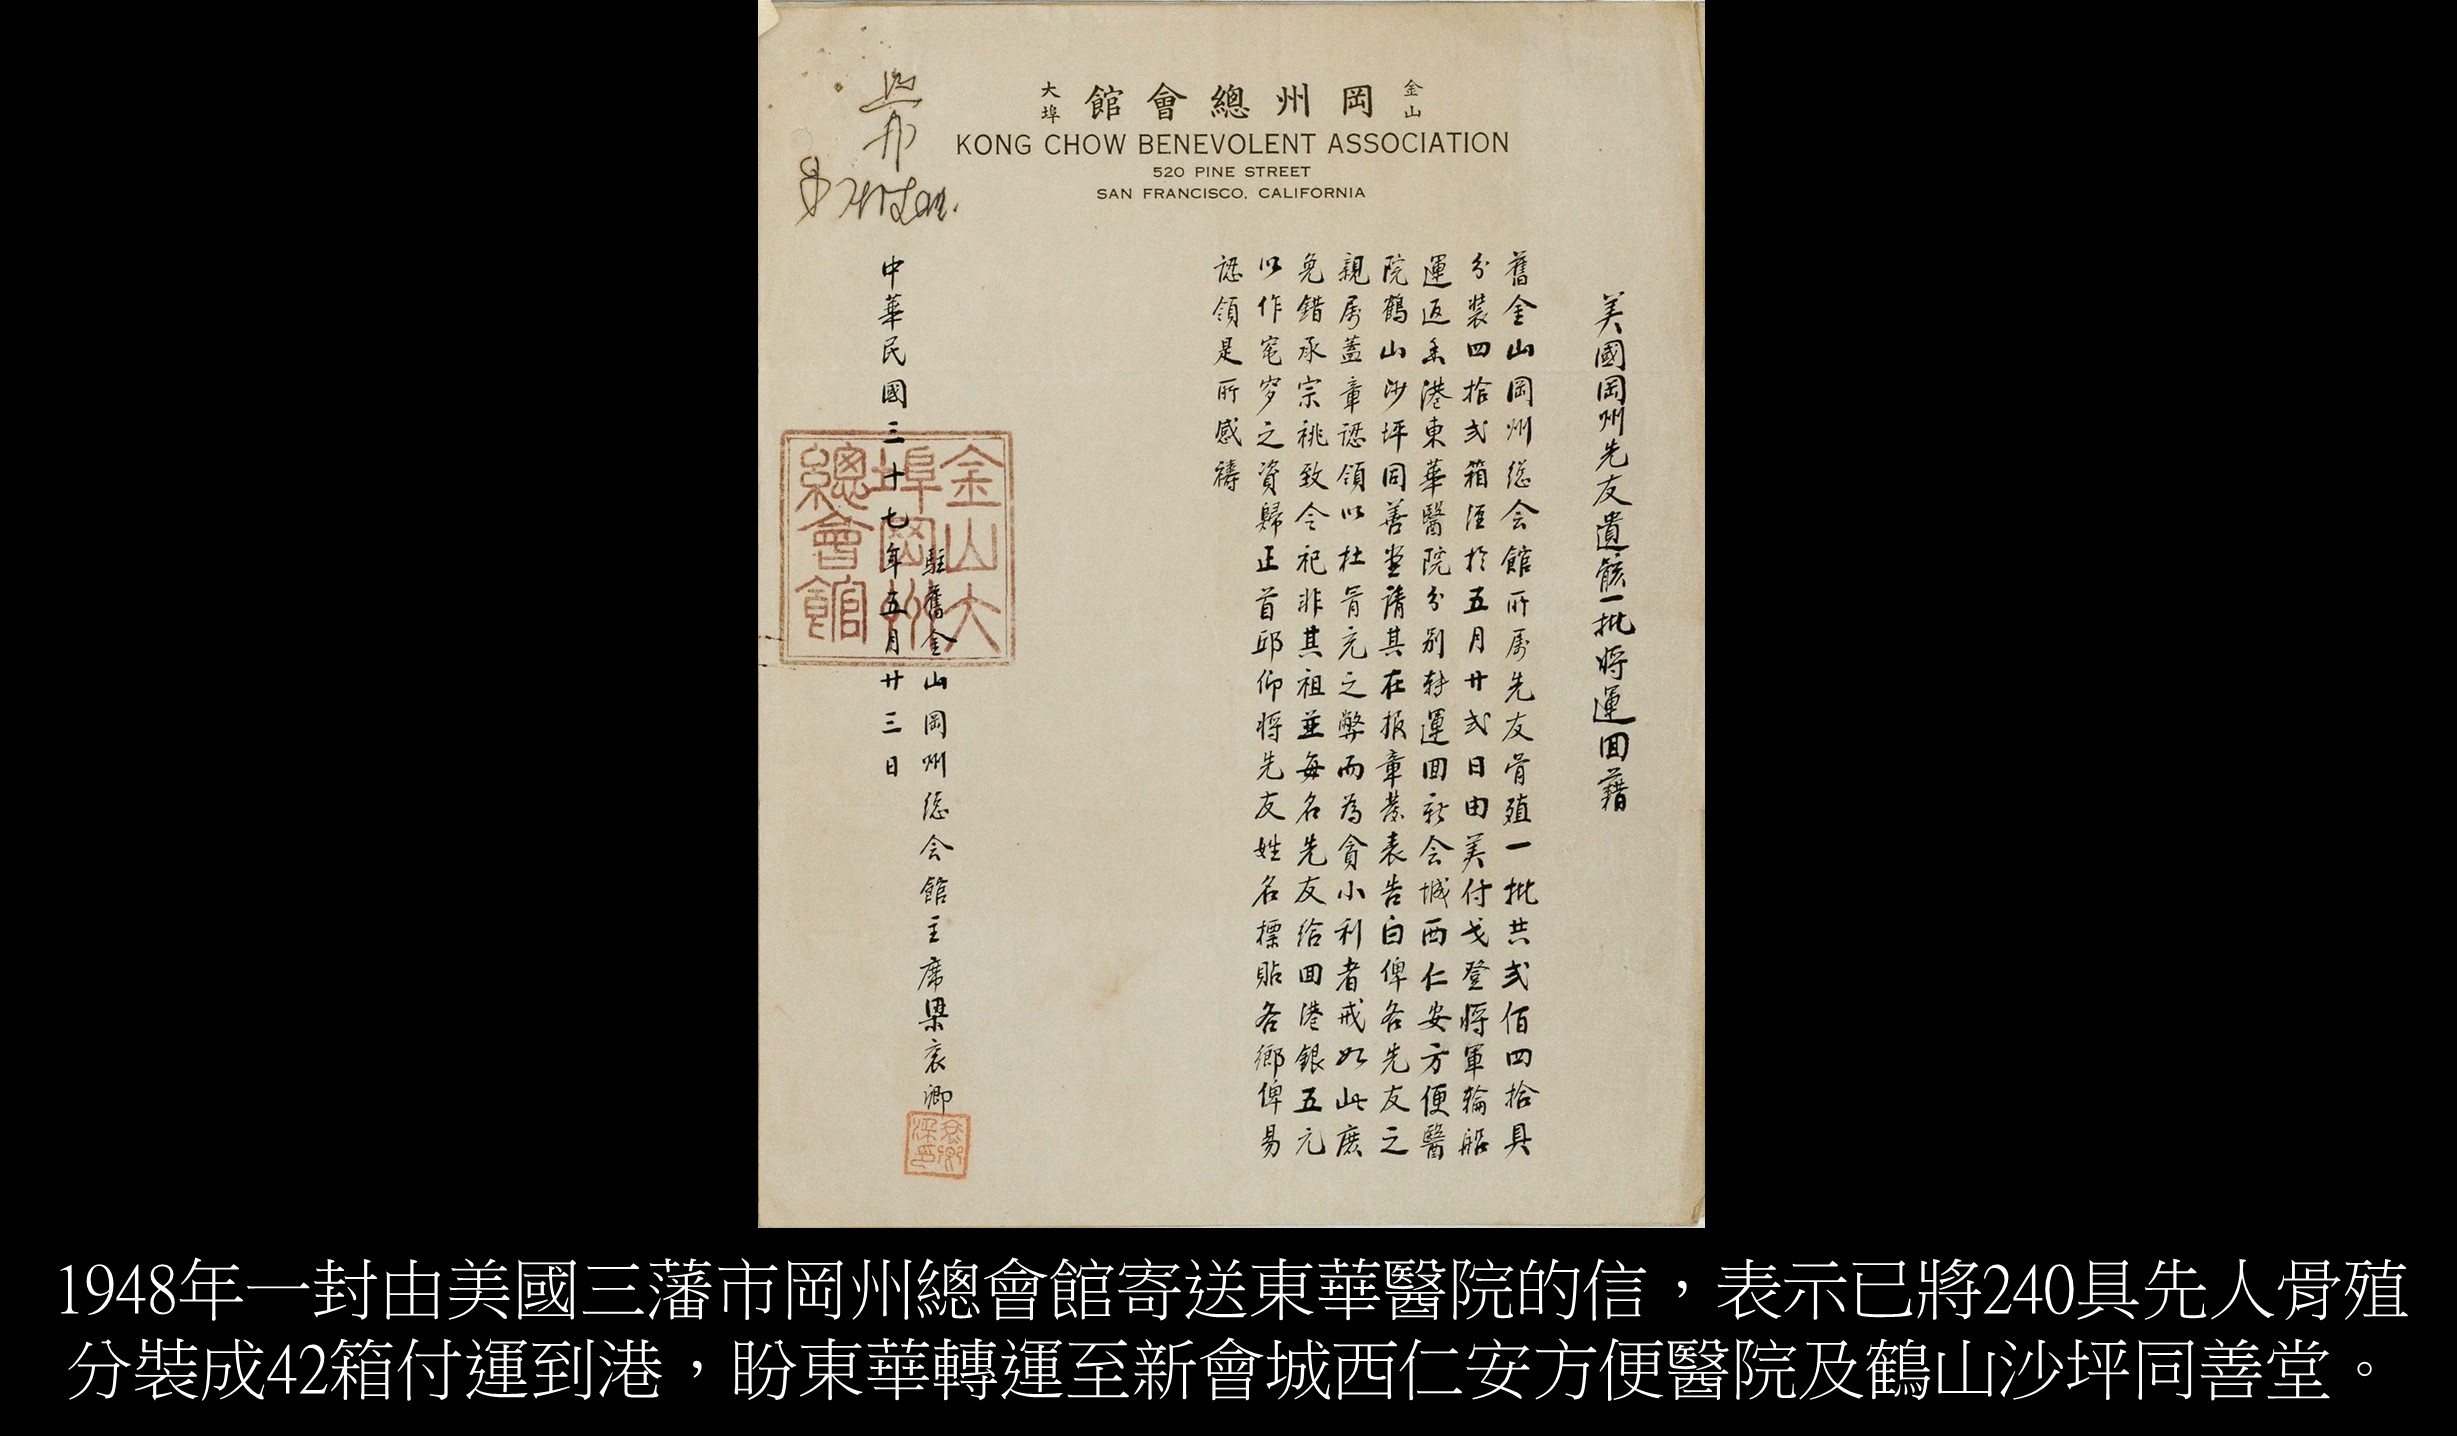 金山 岡州總會館 大埠
KONG CHOW BENEVOLENT ASSOCIATION
520 PINE STREET
SAN FRANCISCO, CALIFORNIA
美國岡州先友遺骸一批將運回藉
舊金山岡州総会館所属先友骨殖一批共弍佰四拾具
分装四拾弍箱 於五月廿弍日由美付戈登将軍輪船
運返香港東華醫院分别转運回新会城西仁安方便醫
院鶴山沙坪同善堂请其在报章發表告白俾各先友之
親属蓋章認領以杜冒充之弊而為貪小利者戒如此庶
免錯承宗祧致令祀非其祖並每名先友给回港銀五元
以作窀穸之資歸正首邱仰将先友姓名標貼各鄉俾易
認領是所感禱
駐舊金山岡州総会館主席梁衮卿
中華民國三十七年五月廿三日
金山大埠岡州總會館
1948年一封由美國三藩市岡州總會館寄送東華醫院的信，表示已將240具先人骨殖
分裝成42箱付運到港，盼東華轉運至新會城西仁安方便醫院及鶴山沙坪同善堂。